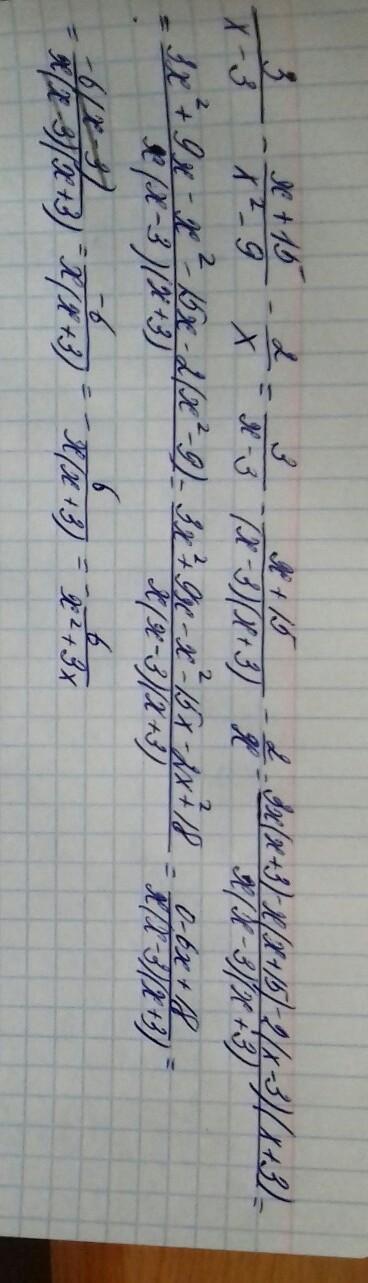 3/(x-3) - (x+15)/(x²-9) - 2/x = 3/(x-3) - (x+15)/((x-3)(x+3)) - 2/x = (3x(x+3)-x(x+15)-2(x-3)(x+3))/(x(x-3)(x+3)) =
= (3x²+9x-x²-15x-2(x²-9))/(x(x-3)(x+3)) = (3x²+9x-x²-15x-2x²+18)/(x(x-3)(x+3)) = (0-6x+18)/(x(x-3)(x+3)) =
= -6(x-3)/(x(x-3)(x+3)) = -6/(x(x+3)) = - 6/(x(x+3)) = - 6/(x²+3x)